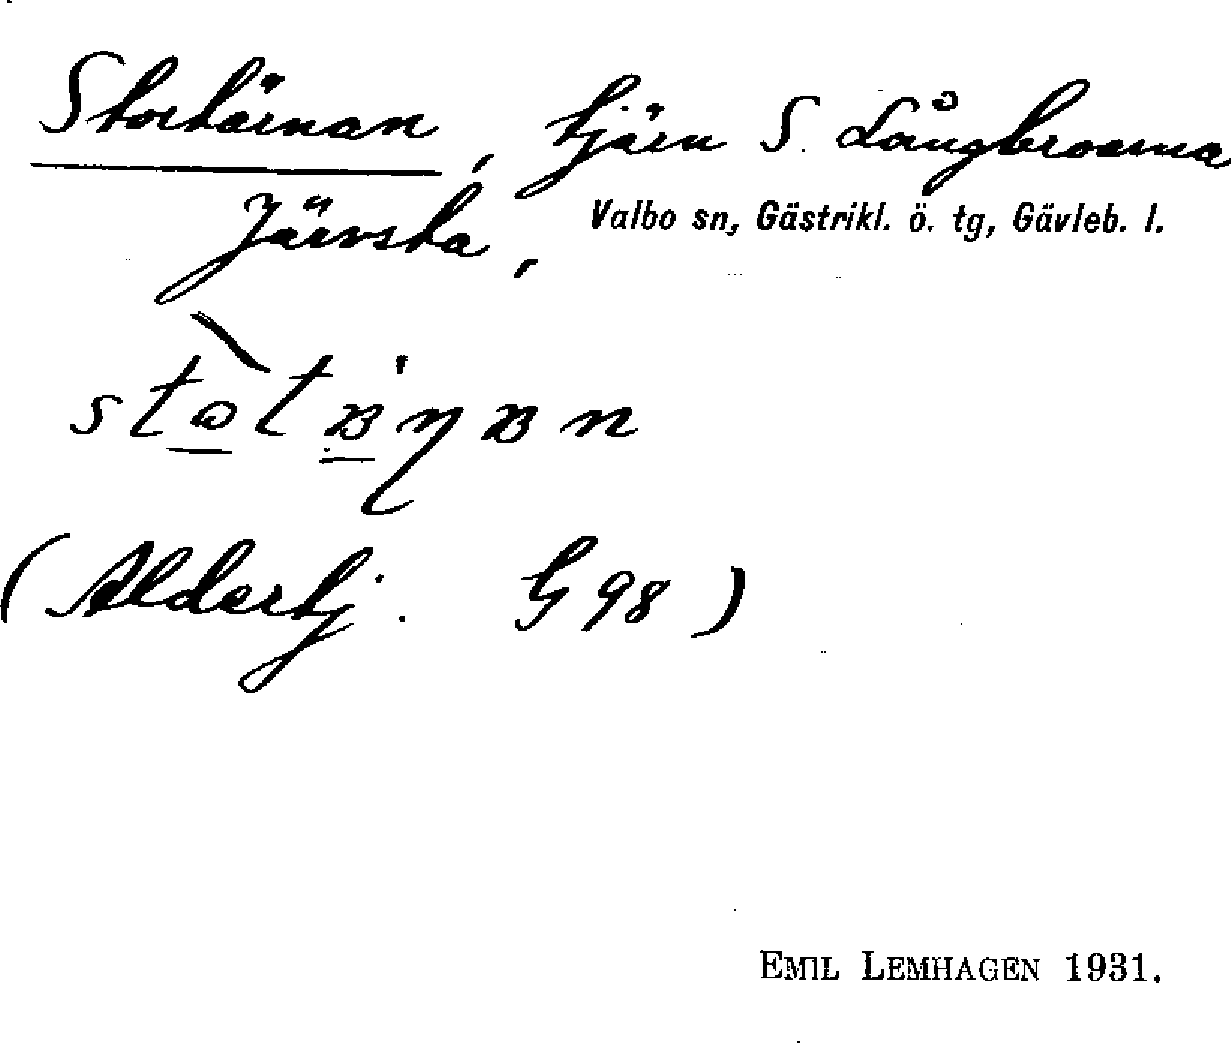 Stortärnan, tjärn S. Långbroarna
Järvsta,
Valbo sn, Gästrikl. ö. tg, Gävleb. l.
(Aldertj. G 98)
EMIL LEMHAGEN 1931.